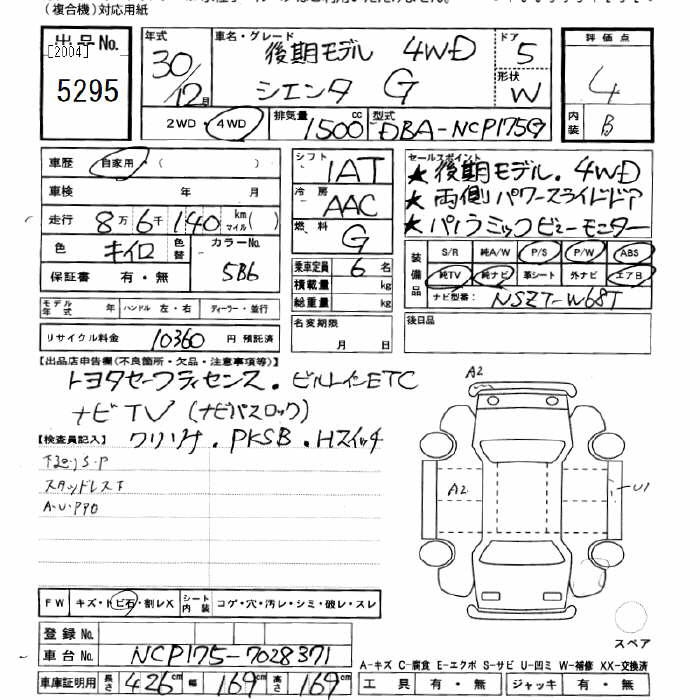 (複合機)対応用紙
出品No. 年式 車名・グレード ドア 評価点
[2004] 後期モデル 4WD 5
5295 30/12月 シエンタ G 形状 W 4
2WD・4WD 排気量 1500cc 型式 DBA-NCP175G 内装 B
車歴 自家用・( ) シフト 1AT セールスポイント
★後期モデル。4WD
車検 年 月 冷房 AAC ★両側パワースライドドア
走行 8万6千140km マイル( ) 燃料 G ★パノラミックビューモニター
色 キイロ 色替 カラーNo. 5B6 乗車定員 6名 装備品 S/R 純A/W P/S P/W ABS
保証書 有・無 積載量 kg 純TV 純ナビ 革シート 外ナビ エアB
総重量 kg ナビ型番: NSZT-W68T
モデル年式 年 ハンドル 左・右 ディーラー・並行 名変期限 月 日 後日品
リサイクル料金 10360 円 預託済
【出品店申告欄(不良箇所・欠品・注意事項等)】
トヨタセーフティセンス。ビルトインETC
ナビTV(ナビバスロック)
【検査員記入】 ワリゾナ。PKSB。Hスイッチ
スタッドレス
A・U・PPO
A2
A2
U1
FW キズ・トビ石・割レX シート内装 コゲ・穴・汚レ・シミ・破レ・スレ
登録No.
車台No. NCP175-7028371
スペア
A-キズ C-腐食 E-エクボ S-サビ U-凹ミ W-補修 XX-交換済
車庫証明用 長さ 426cm 幅 169cm 高さ 169cm 工具 有・無 ジャッキ 有・無